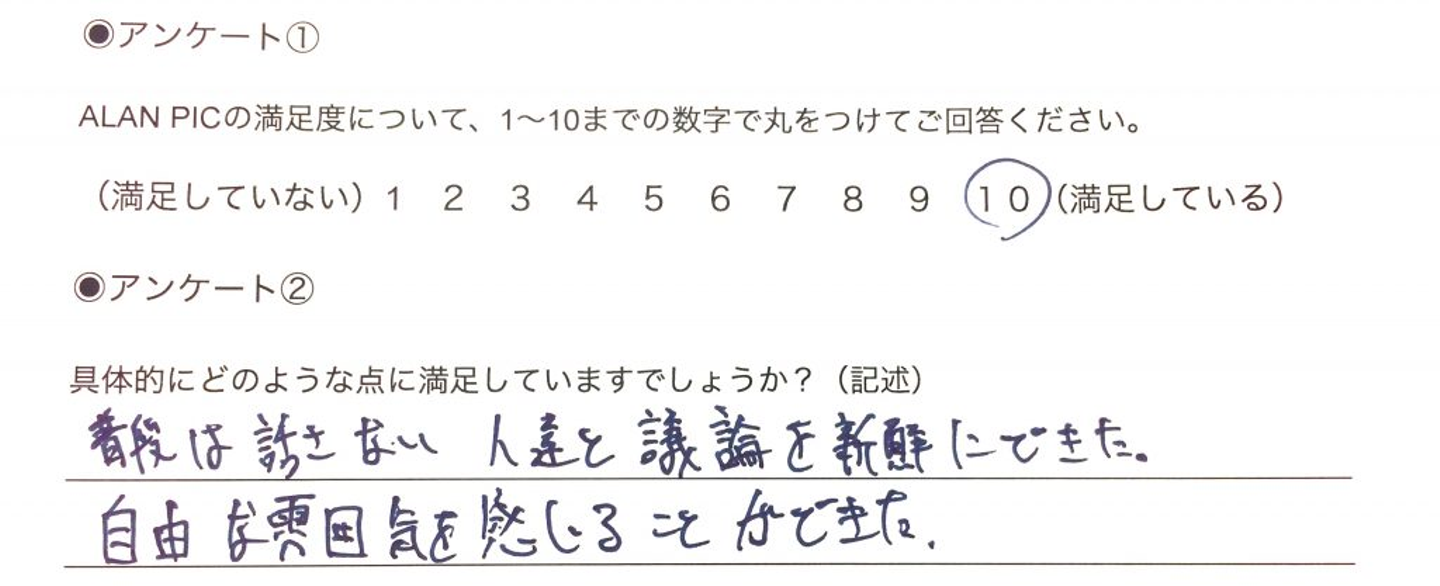 ◉アンケート①
ALAN PICの満足度について、1〜10までの数字で丸をつけてご回答ください。
（満足していない）1 2 3 4 5 6 7 8 9 10（満足している）
◉アンケート②
具体的にどのような点に満足していますでしょうか？（記述）
普段は話さない 人達と議論を新鮮にできた。
自由な雰囲気を感じることができた。